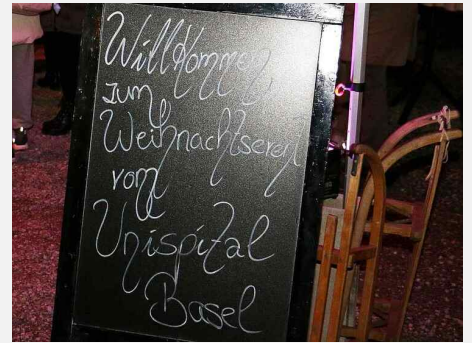 Willkommen
zum
Weihnachtsevent
vom
Unispital
Basel